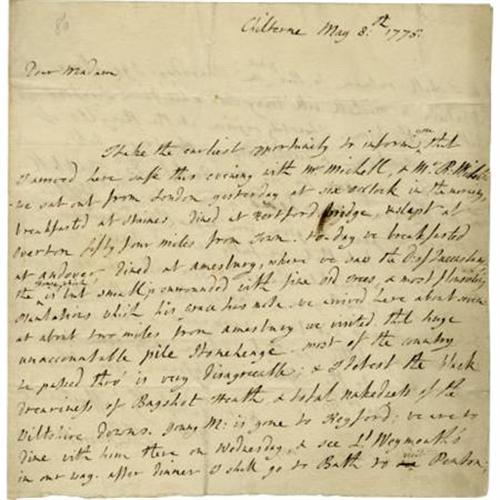 80
Chilterne May 8.th 1775.
Dear Madam
I take the earliest opportunity to inform you that
I arrived here safe this evening with Mr Michell, & Mr R. Michell:
we sat out from London yesterday at six o'clock in the morning,
breakfasted at Staines, dined at Hertford Bridge, & slept at
Overton fifty four miles from Town. to day we breakfasted
at andover dined at amesbury, where we saw the D. of Queensbury
the house is but small, surrounded with fine old trees, & most flourishing
plantations which his Grace has made. we arrived here about seven
at about two miles from amesbury we visited that huge
unaccountable pile Stonehenge. most of the country
we passed thro' is very disagreeable; & I detest the black
dreariness of Bagshot Heath & total nakedness of the
Wiltshire Downs. Jonny M: is gone to Heyford; we are to
dine with him there on Wednesday, & see Ld Weymouth's
in our way. after dinner I shall go to Bath to visit